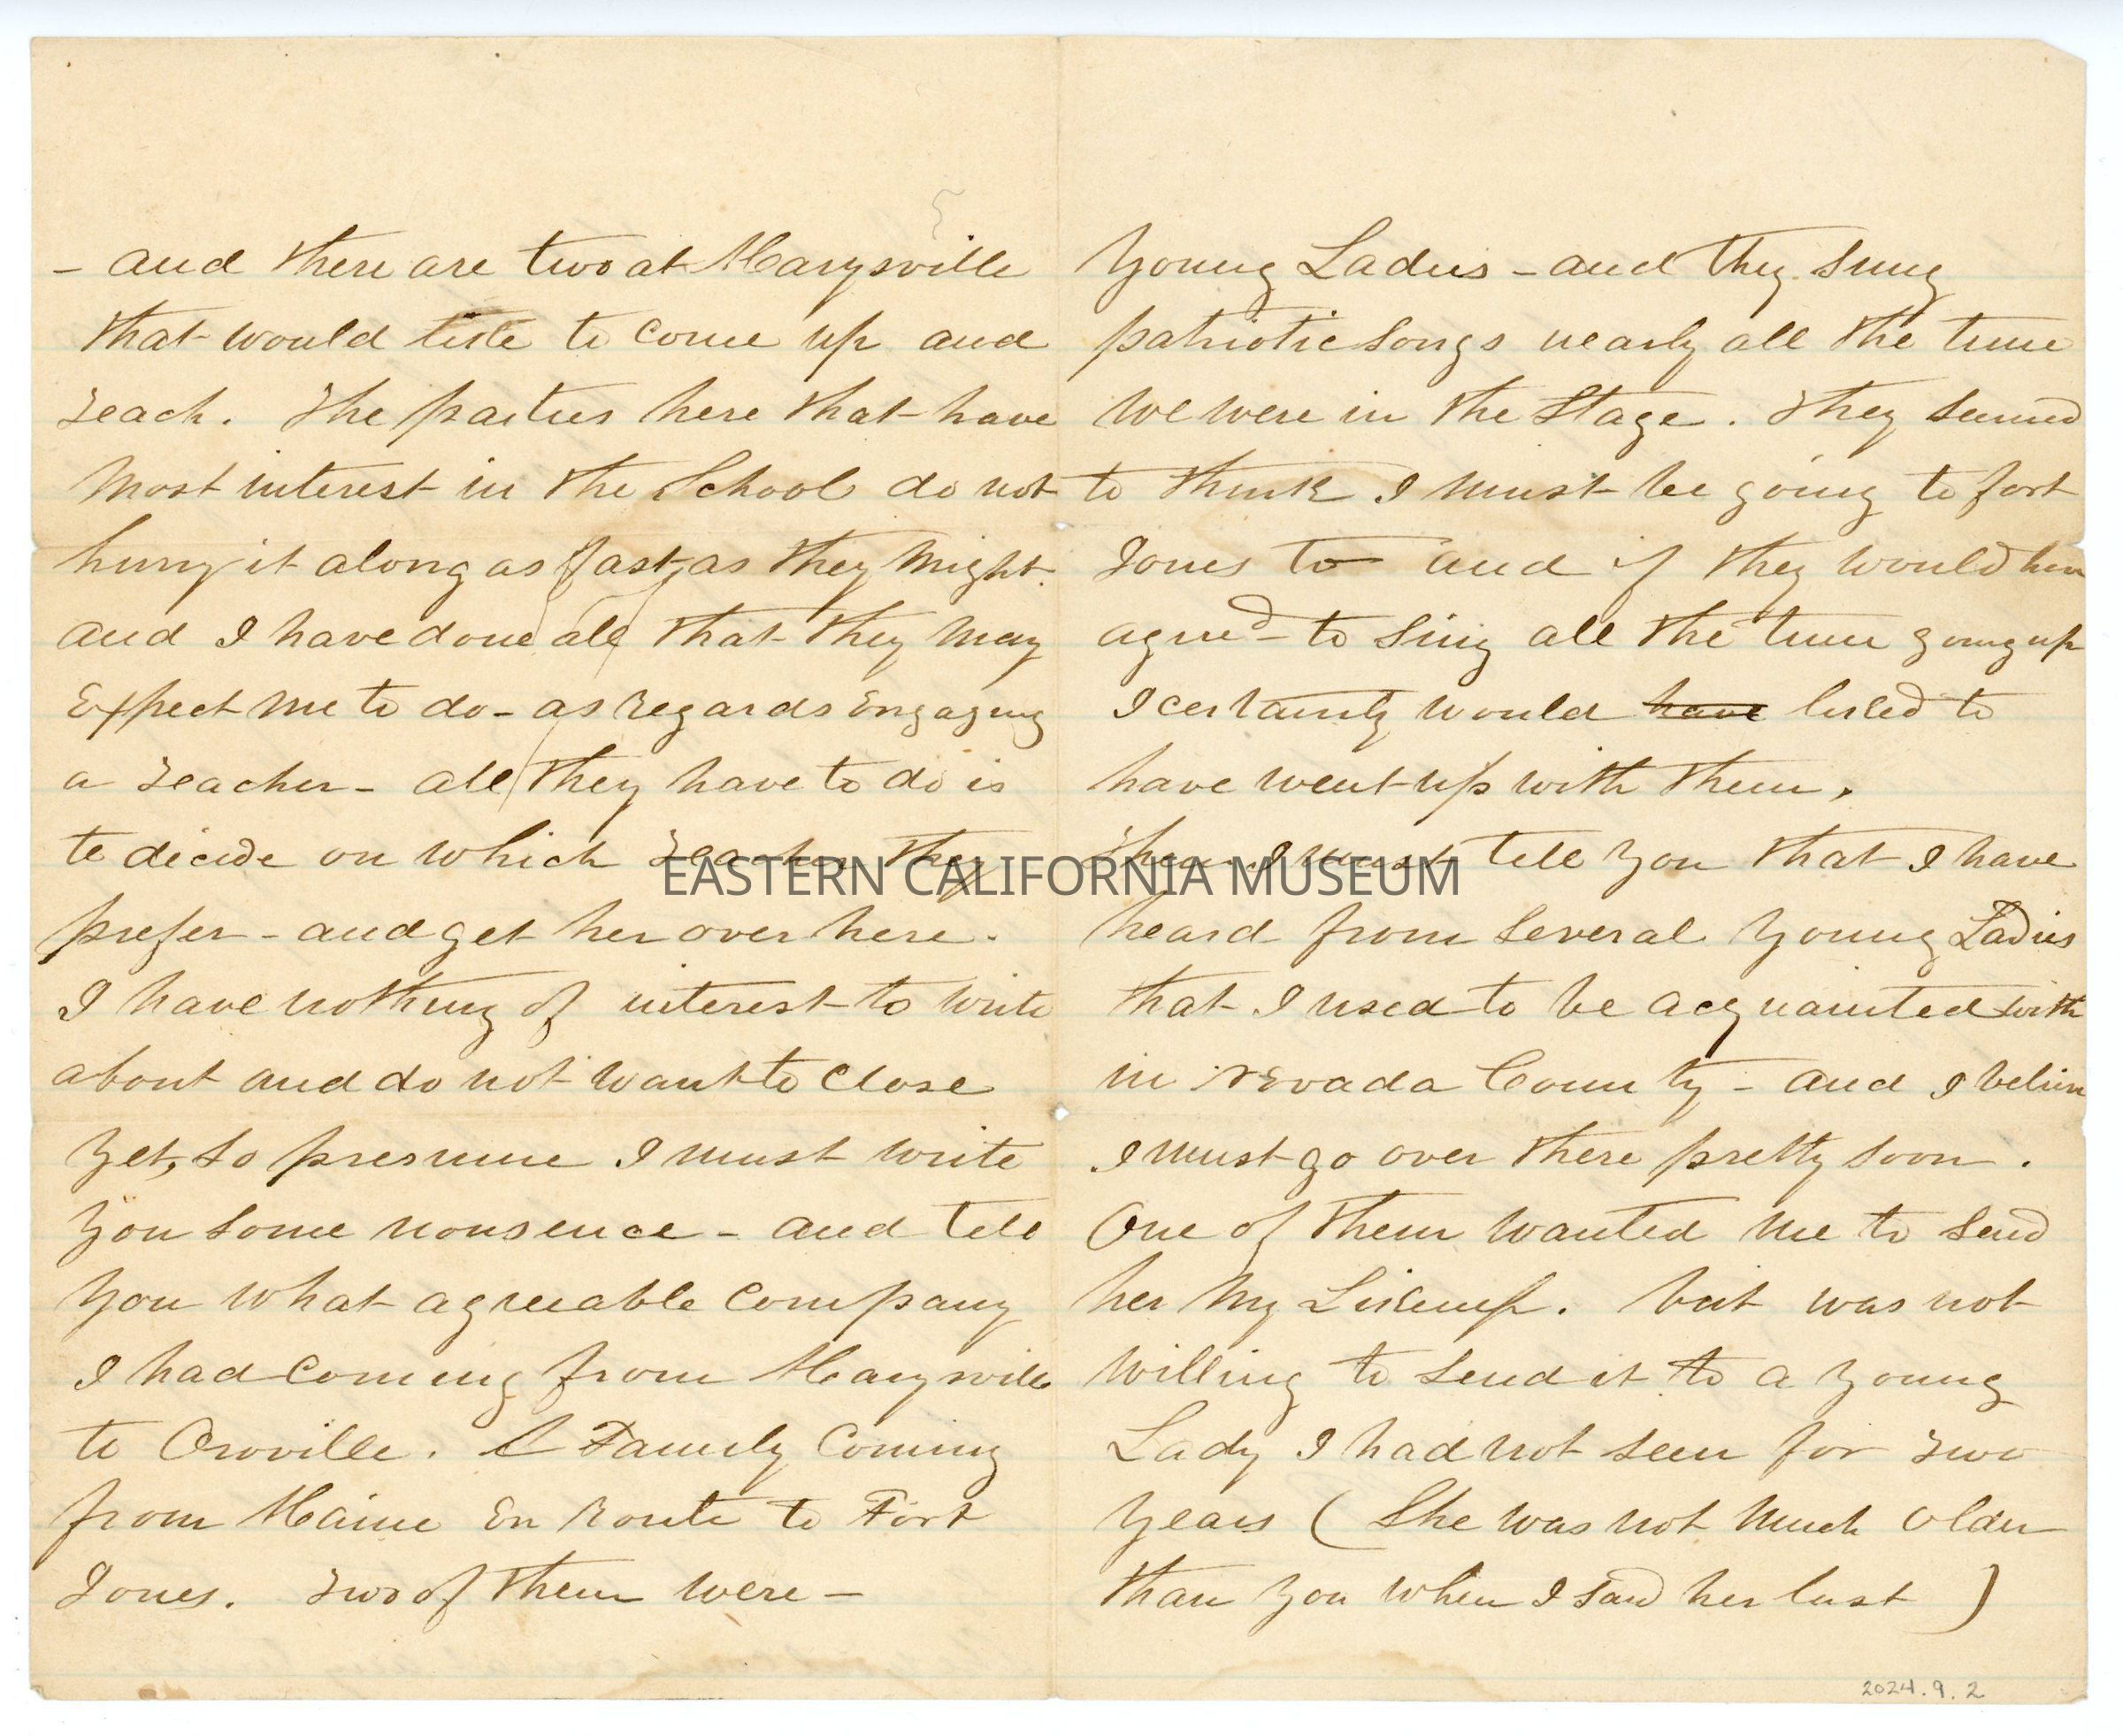 - and there are two at Marysville
that would like to come up and
Teach. The parties here that have
most interest in the School do not
hurry it along as fast as they might.
and I have done all that they may
Expect me to do - as regards Engaging
a Teacher - all they have to do is
to decide on which Teacher they
prefer - and get her over here.
I have nothing of interest to write
about and do not want to close
yet, so presume I must write
you some nonsence - and tell
you what agreeable company
I had coming from Marysville
to Oroville. A Family Coming
from Maine En Route to Fort
Jones. Two of them were -
Young Ladies - and they sung
patriotic songs nearly all the time
we were in the Stage. They seemed
to think I must be going to fort
Jones to - and if they would have
agreed - to sing all the time going up
I certainly would have liked to
have went up with them.
Then I must tell you that I have
heard from several Young Ladies
that I used to be acquainted with
in Nevada County - and I believe
I must go over there pretty soon.
One of them wanted me to send
her my Likeness. but was not
willing to send it to a young
Lady I had not seen for Two
years ( She was not much older
than you when I saw her last )
EASTERN CALIFORNIA MUSEUM
2024.9.2